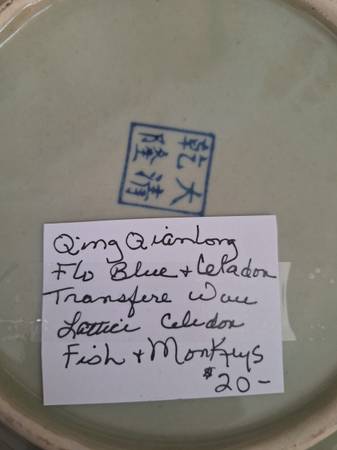 大清
乾隆
Qing Qianlong
Flo Blue + Celadon
Transfere Ware
Lattici Celedon
Fish + Monkeys
$20-